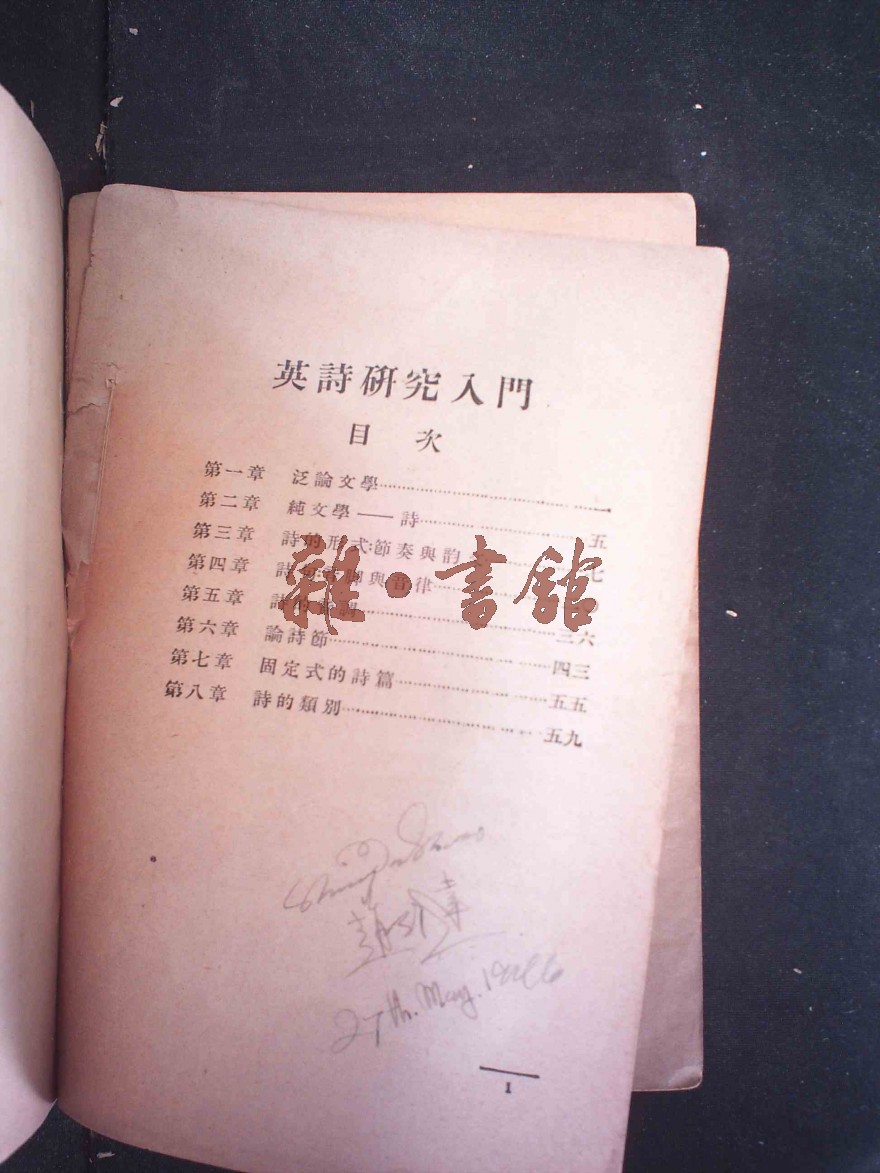 英詩研究入門
目 次
第一章 泛論文學……………………一
第二章 純文學——詩……………………五
第三章 詩的形式:節奏與韵……………………七
第四章 詩 與音律……………………
第五章 詩的 ……………………三六
第六章 論詩節……………………四三
第七章 固定式的詩篇……………………五五
第八章 詩的類別……………………五九
雜·書館
27th. May. 1946
1